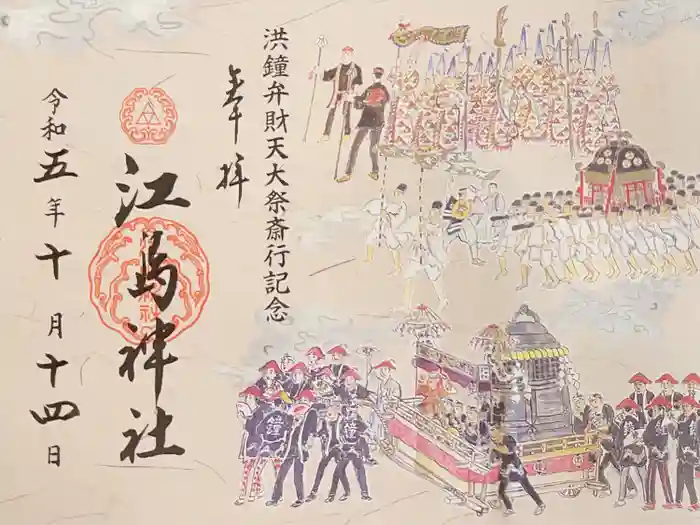 洪鐘弁財天大祭斎行記念
奉拝
江島神社
令和五年十月十四日
鐘
鐘